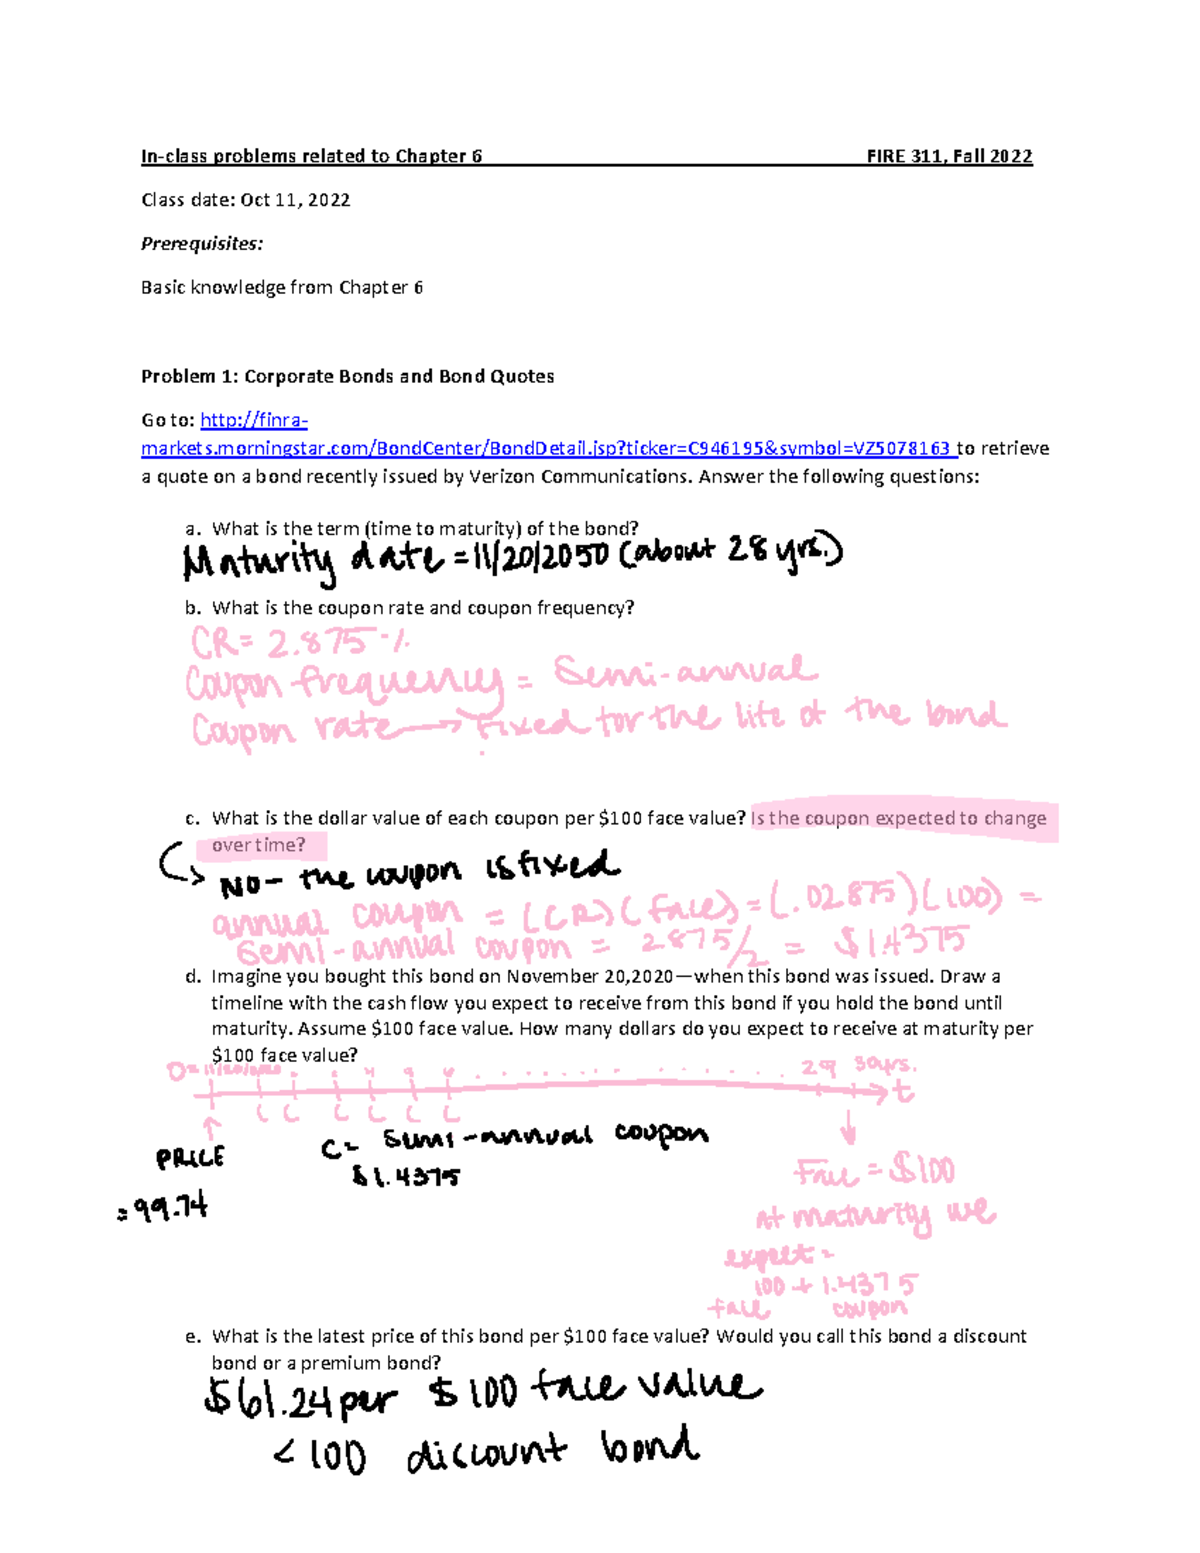 In-class problems related to Chapter 6 FIRE 311, Fall 2022
Class date: Oct 11, 2022
Prerequisites:
Basic knowledge from Chapter 6
Problem 1: Corporate Bonds and Bond Quotes
Go to: http://finra-
markets.morningstar.com/BondCenter/BondDetail.jsp?ticker=C946195&symbol=VZ5078163 to retrieve
a quote on a bond recently issued by Verizon Communications. Answer the following questions:
a. What is the term (time to maturity) of the bond?
Maturity date = 11/20/2050 (about 28 yrs.)
b. What is the coupon rate and coupon frequency?
CR = 2.875 %
Coupon frequency = Semi-annual
Coupon rate → Fixed for the life of the bond
c. What is the dollar value of each coupon per $100 face value? Is the coupon expected to change
over time?
NO - the coupon is fixed
annual coupon = (CR)(face) = (.02875)(100) =
semi-annual coupon = 2.875/2 = $1.4375
d. Imagine you bought this bond on November 20,2020—when this bond was issued. Draw a
timeline with the cash flow you expect to receive from this bond if you hold the bond until
maturity. Assume $100 face value. How many dollars do you expect to receive at maturity per
$100 face value?
29 30yrs.
t
C C C C C C
PRICE
= 99.74
C = semi-annual coupon
$1.4375
Face = $100
at maturity we
expect =
100 + 1.4375
face coupon
e. What is the latest price of this bond per $100 face value? Would you call this bond a discount
bond or a premium bond?
$61.24 per $100 face value
< 100 discount bond